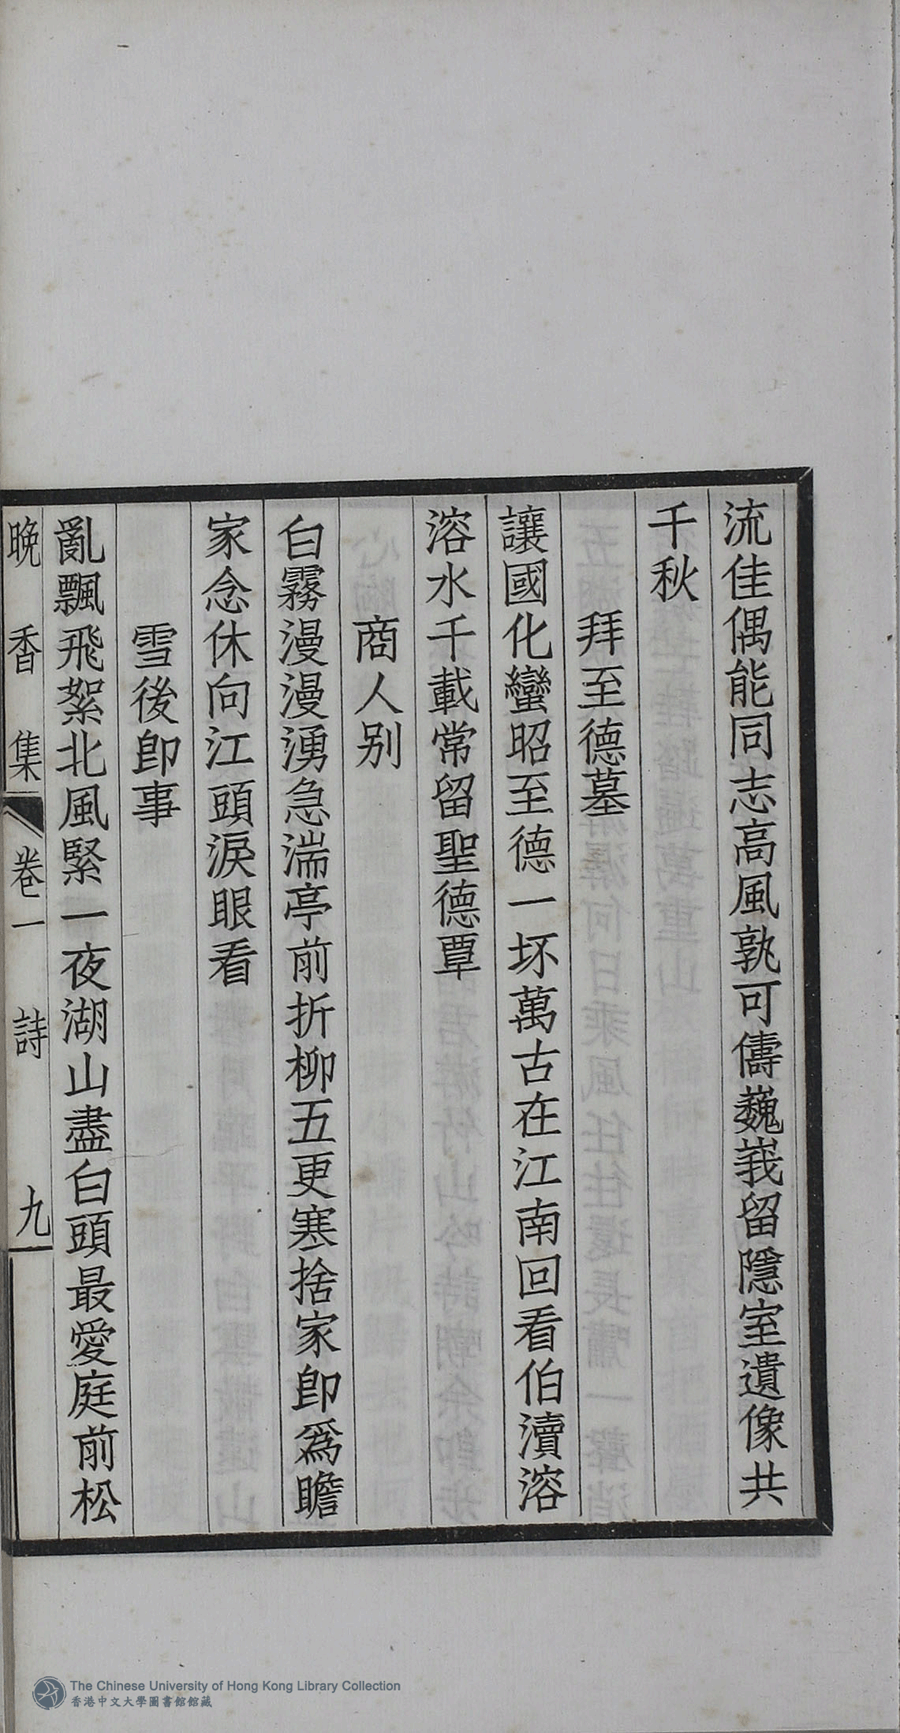 流佳偶能同志高風孰可儔巍峩留隱室遺像共
千秋
拜至德墓
讓國化蠻昭至德一坏萬古在江南回看伯瀆溶
溶水千載常留聖德覃
商人别
白霧漫漫湧急湍亭前折柳五更寒捨家卽爲贍
家念休向江頭淚眼看
雪後卽事
亂飄飛絮北風緊一夜湖山盡白頭最愛庭前松
晚香集 卷一 詩 九
The Chinese University of Hong Kong Library Collection
香港中文大學圖書館館藏